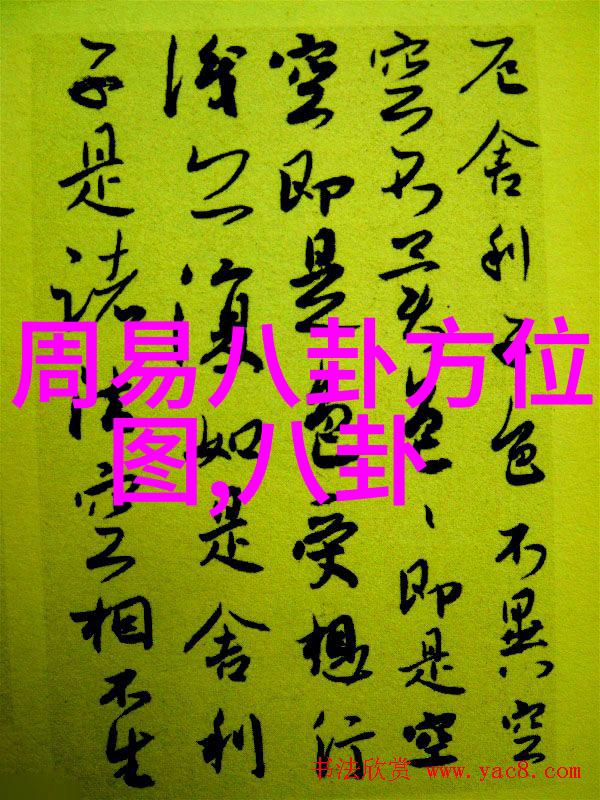 厄舍利子色不異空
空不異色、即是空
空即是色受想行
識亦復如是舍利
子是諸法空相不生
周易八卦方位
图,八卦
书法欣赏 www.yac8.com